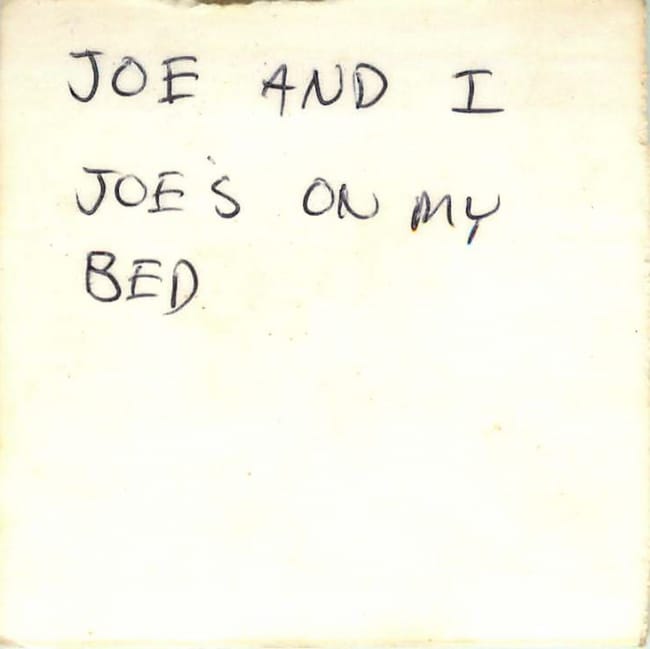 JOE AND I
JOE'S ON MY
BED